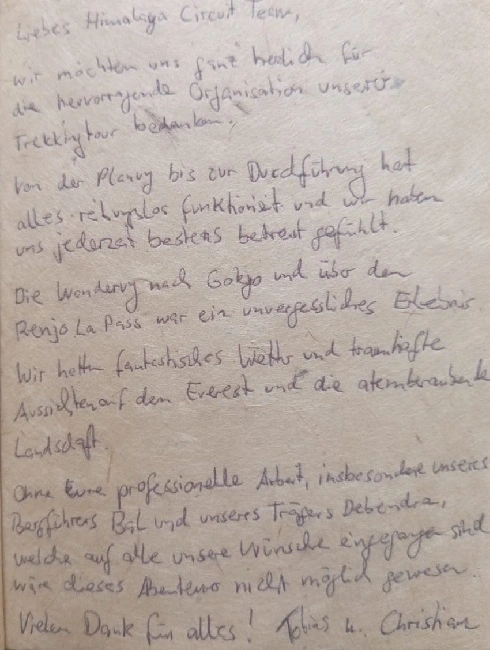 Liebes Himalaya Circuit Team,
wir möchten uns ganz herzlich für
die hervorragende Organisation unserer
Trekkingtour bedanken.
Von der Planung bis zur Durchführung hat
alles reibungslos funktioniert und wir haben
uns jederzeit bestens betreut gefühlt.
Die Wanderung nach Gokyo und über den
Renjo La Pass war ein unvergessliches Erlebnis.
Wir hatten fantastisches Wetter und traumhafte
Aussichten auf dem Everest und die atemberaubende
Landschaft.
Ohne Eure professionelle Arbeit, insbesondere unseres
Bergführers und unseres Trägers Debendra,
welche auf alle unsere Wünsche eingegangen sind
wäre dieses Abenteuer nicht möglich gewesen.
Vielen Dank für alles! Tobias u. Christian